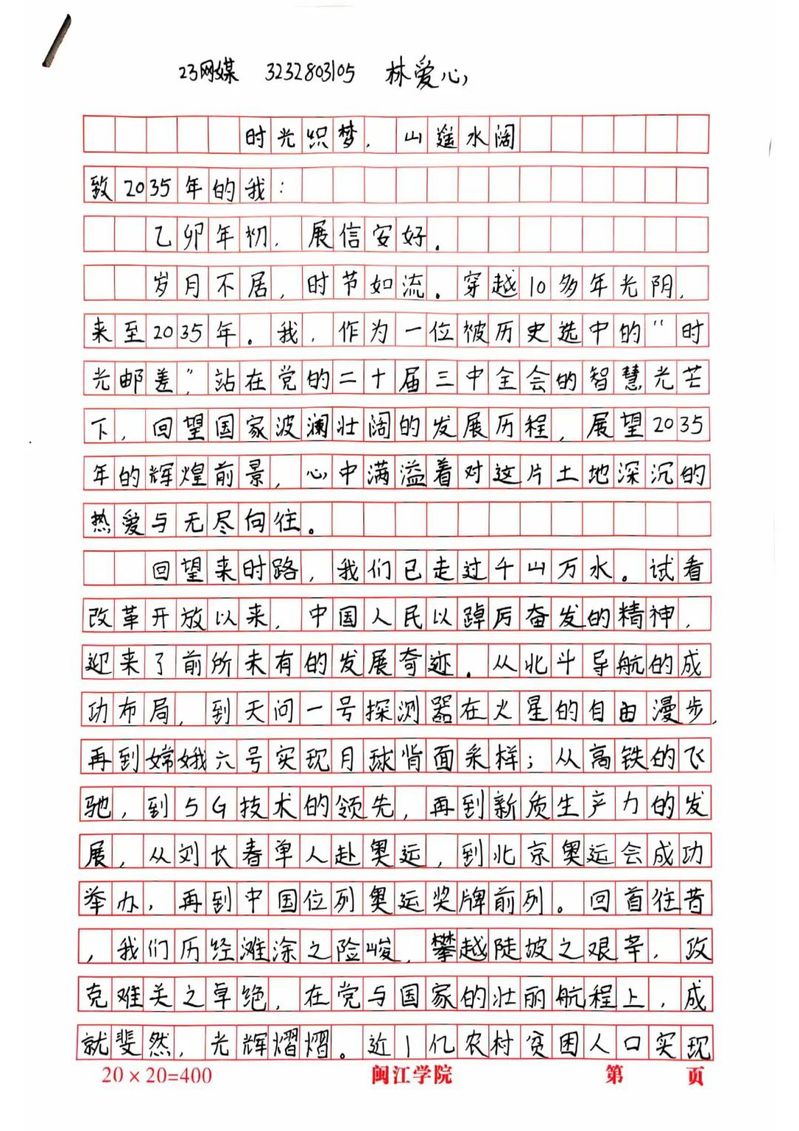 23网媒 3232803105 林爱心
时光织梦，山遥水阔
致2035年的我：
乙卯年初，展信安好。
岁月不居，时节如流。穿越10多年光阴，
来至2035年。我，作为一位被历史选中的“时
光邮差”，站在党的二十届三中全会的智慧光芒
下，回望国家波澜壮阔的发展历程，展望2035
年的辉煌前景，心中满溢着对这片土地深沉的
热爱与无尽向往。
回望来时路，我们已走过千山万水。试看
改革开放以来，中国人民以踔厉奋发的精神，
迎来了前所未有的发展奇迹。从北斗导航的成
功布局，到天问一号探测器在火星的自由漫步，
再到嫦娥六号实现月球背面采样；从高铁的飞
驰，到5G技术的领先，再到新质生产力的发
展，从刘长春单人赴奥运，到北京奥运会成功
举办，再到中国位列奥运奖牌前列。回首往昔
，我们历经滩涂之险峻，攀越陡坡之艰辛，攻
克难关之卓绝，在党与国家的壮丽航程上，成
就斐然，光辉熠熠。近1亿农村贫困人口实现
20×20=400 闽江学院 第 页